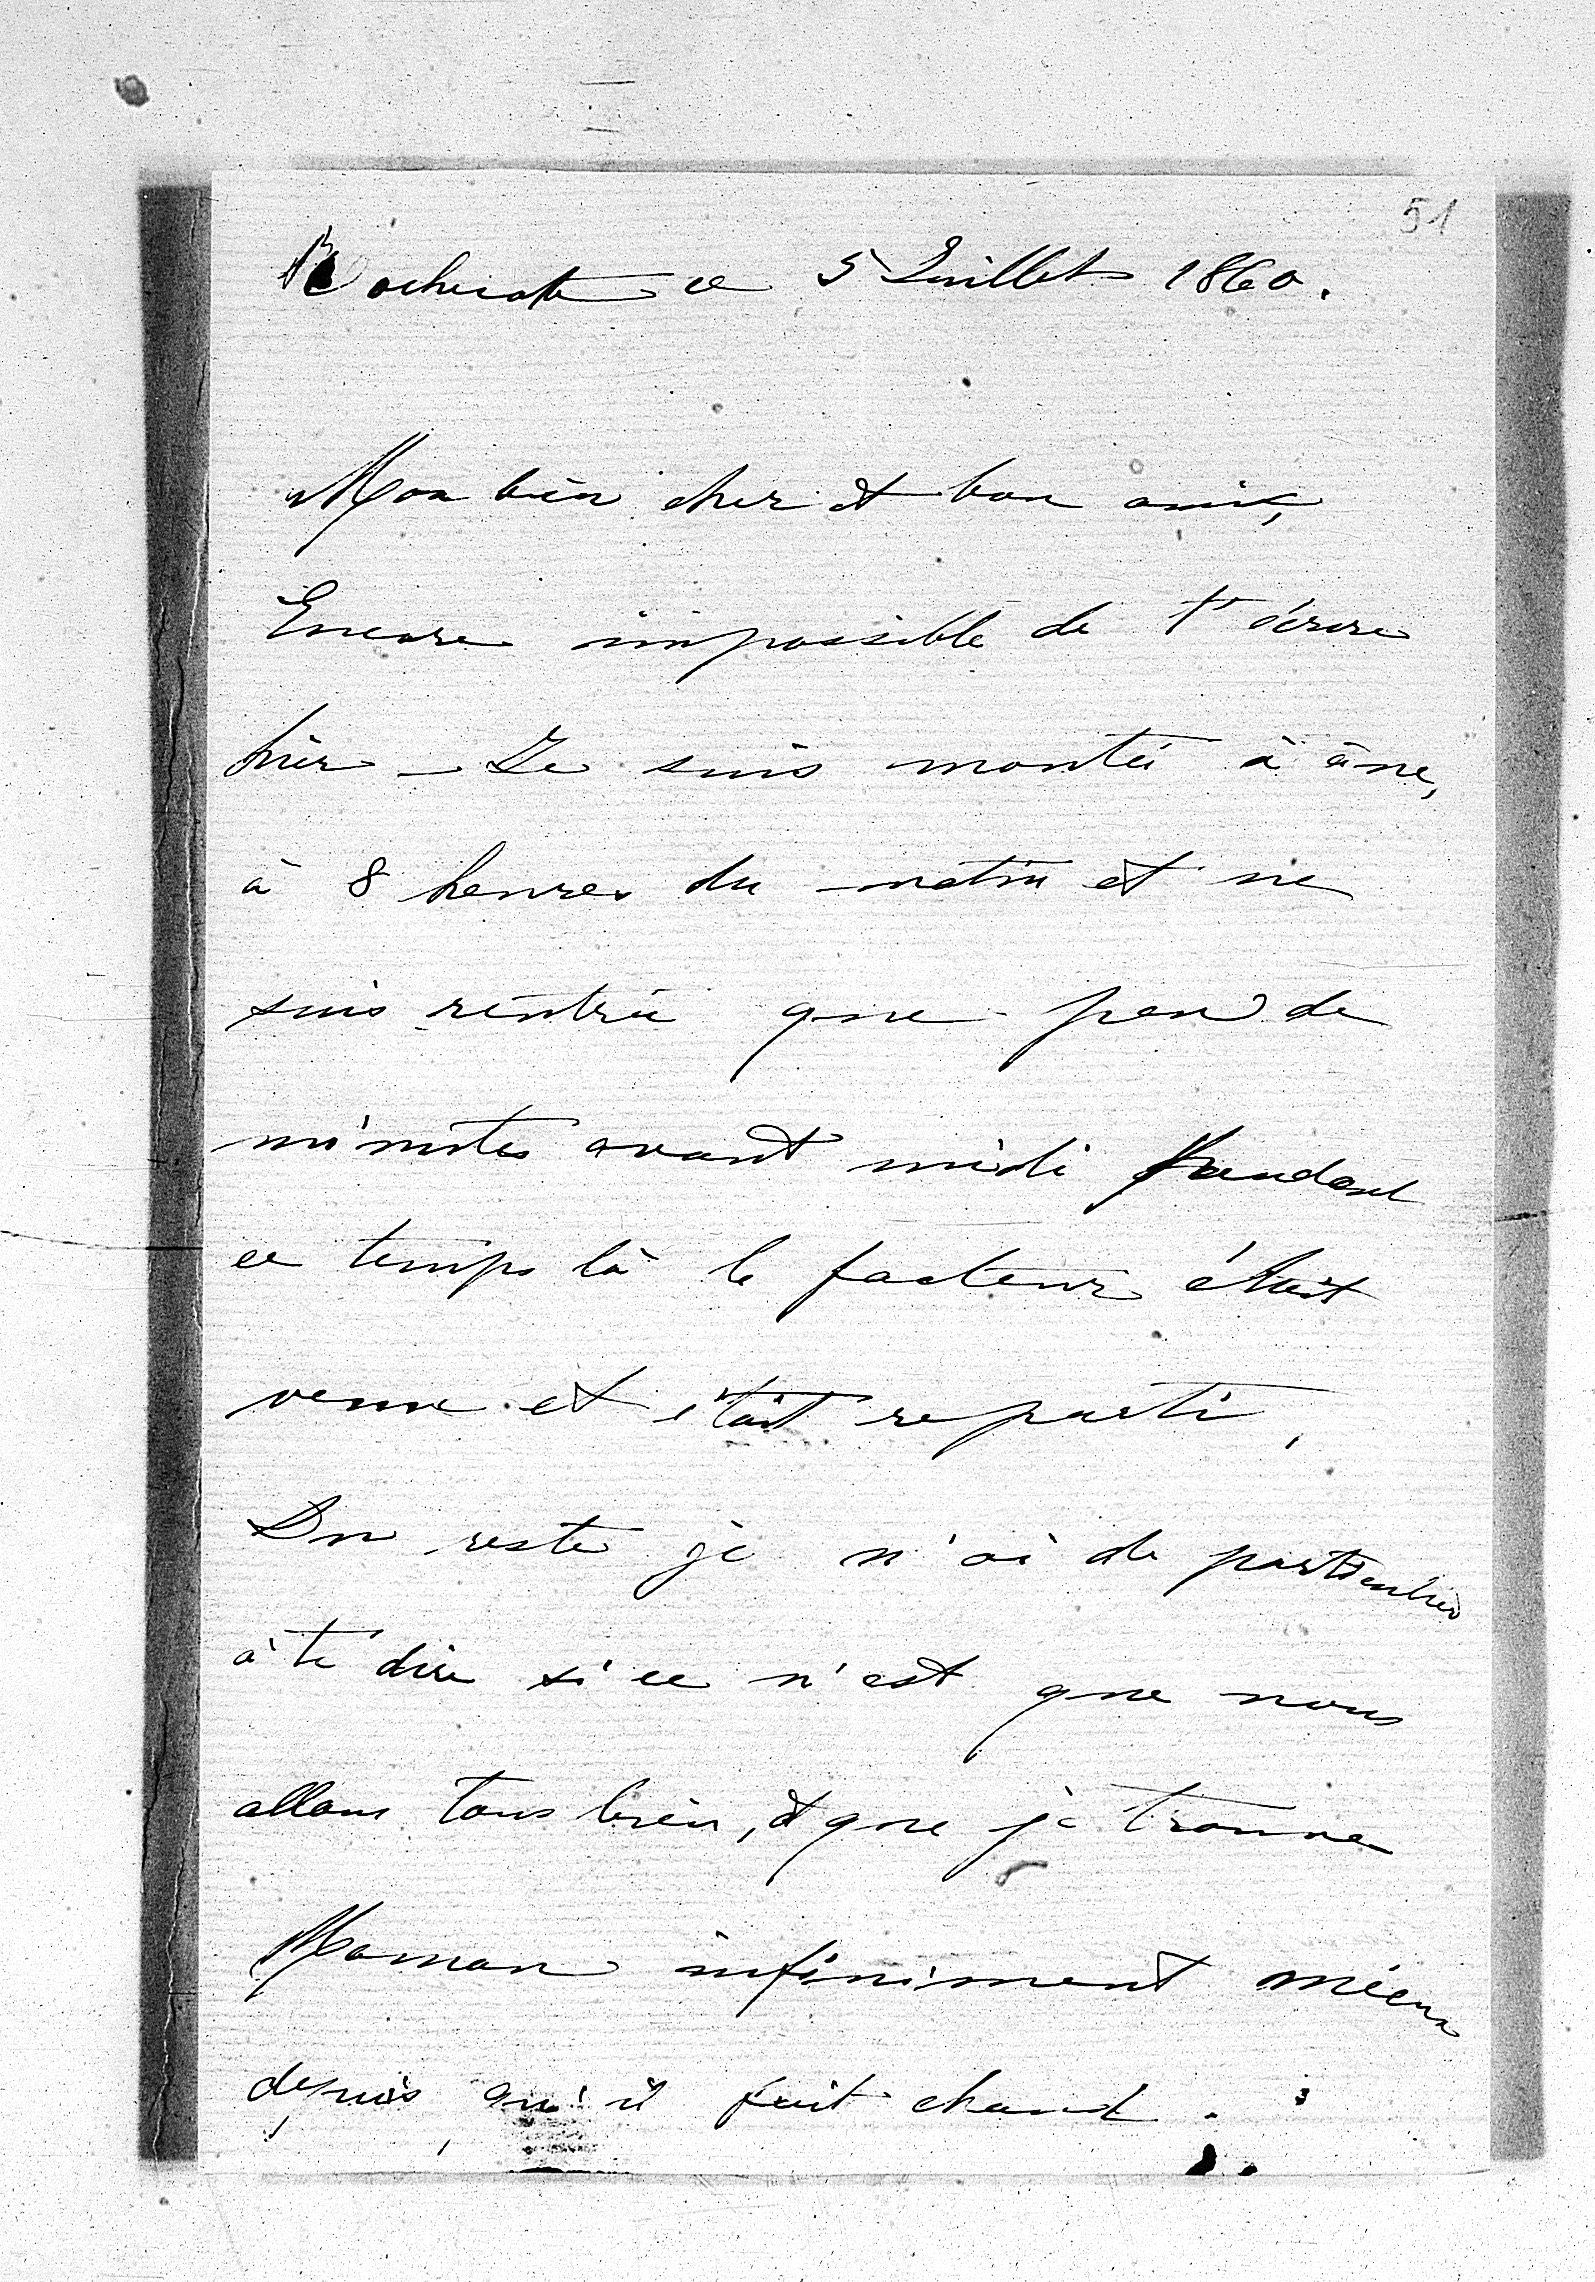 51
Rochecotte ce 5 Juillet 1860.
Mon bien cher et bon ami,
Encore impossible de t'écrire
hier – Je suis montée à âne,
à 8 heures du matin et ne
suis rentrée que peu de
minutes avant midi pendant
ce temps là le facteur était
venu et était reparti,
Du reste je n'ai de particulier
à te dire si ce n'est que nous
allons tous bien, et que je trouve
Maman infiniment mieux
depuis qu'il fait chaud.